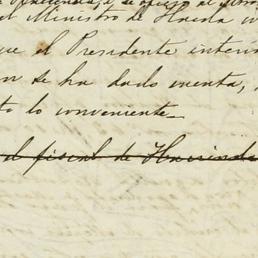 se ofició al
el Ministro de Hacda
que el Presidente interi
se ha dado cuenta,
to lo conveniente_
al fiscal de Hacienda